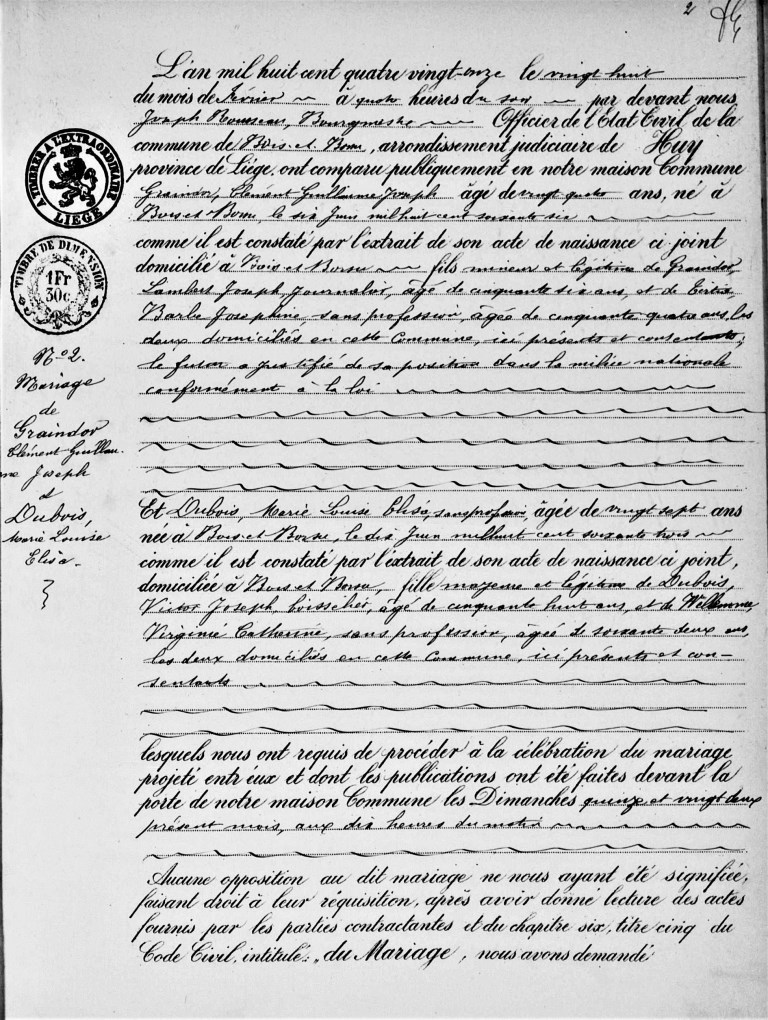 2
L'an mil huit cent quatre vingt-onze le vingt huit
du mois de février à quatre heures du soir par devant nous
Joseph Rousseau, Bourgmestre Officier de l'Etat Civil de la
commune de Bois-et-Borsu, arrondissement judiciaire de Huy
province de Liége, ont comparu publiquement en notre maison Commune
Graindor, Clément Guillaume Joseph âgé de vingt quatre ans, né à
Bois et Borsu, le six Juin mil huit cent soixante six
comme il est constaté par l'extrait de son acte de naissance ci-joint
domicilié à Bois et Borsu fils mineur et légitime de Graindor,
Lambert Joseph, Journalier, âgé de cinquante six ans, et de
Barbe Josephine, sans profession, âgée de cinquante quatre ans, les
deux domiciliés en cette Commune, ici présents et consentants;
le futur a justifié de sa position dans la milice nationale
conformément à la loi
A TIMBRER A L'EXTRAORDINAIRE
LIEGE
TIMBRE DE DIMENSION
1 Fr
30c
N° 2.
Mariage
de
Graindor
Clément Guillau-
me Joseph
et
Dubois,
Marie Louise
Elisa.
Et Dubois, Marie Louise Elisa, sans profession, âgée de vingt sept ans
née à Bois et Borsu, le dix Juin mil huit cent soixante trois
comme il est constaté par l'extrait de son acte de naissance ci joint,
domiciliée à Bois et Borsu, fille majeure et légitime de Dubois,
Victor Joseph, âgé de cinquante huit ans, et de
Virginie Catherine, sans profession, âgée de soixante deux ans,
les deux domiciliés en cette Commune, ici présents et con-
sentants
lesquels nous ont requis de procéder à la célébration du mariage
projeté entr'eux et dont les publications ont été faites devant la
porte de notre maison Commune les Dimanches quinze et vingt deux
présent mois, aux dix heures du matin
Aucune opposition au dit mariage ne nous ayant été signifiée,
faisant droit à leur réquisition, après avoir donné lecture des actes
fournis par les parties contractantes et du chapitre six, titre cinq du
Code Civil, intitulé: „du Mariage, nous avons demandé